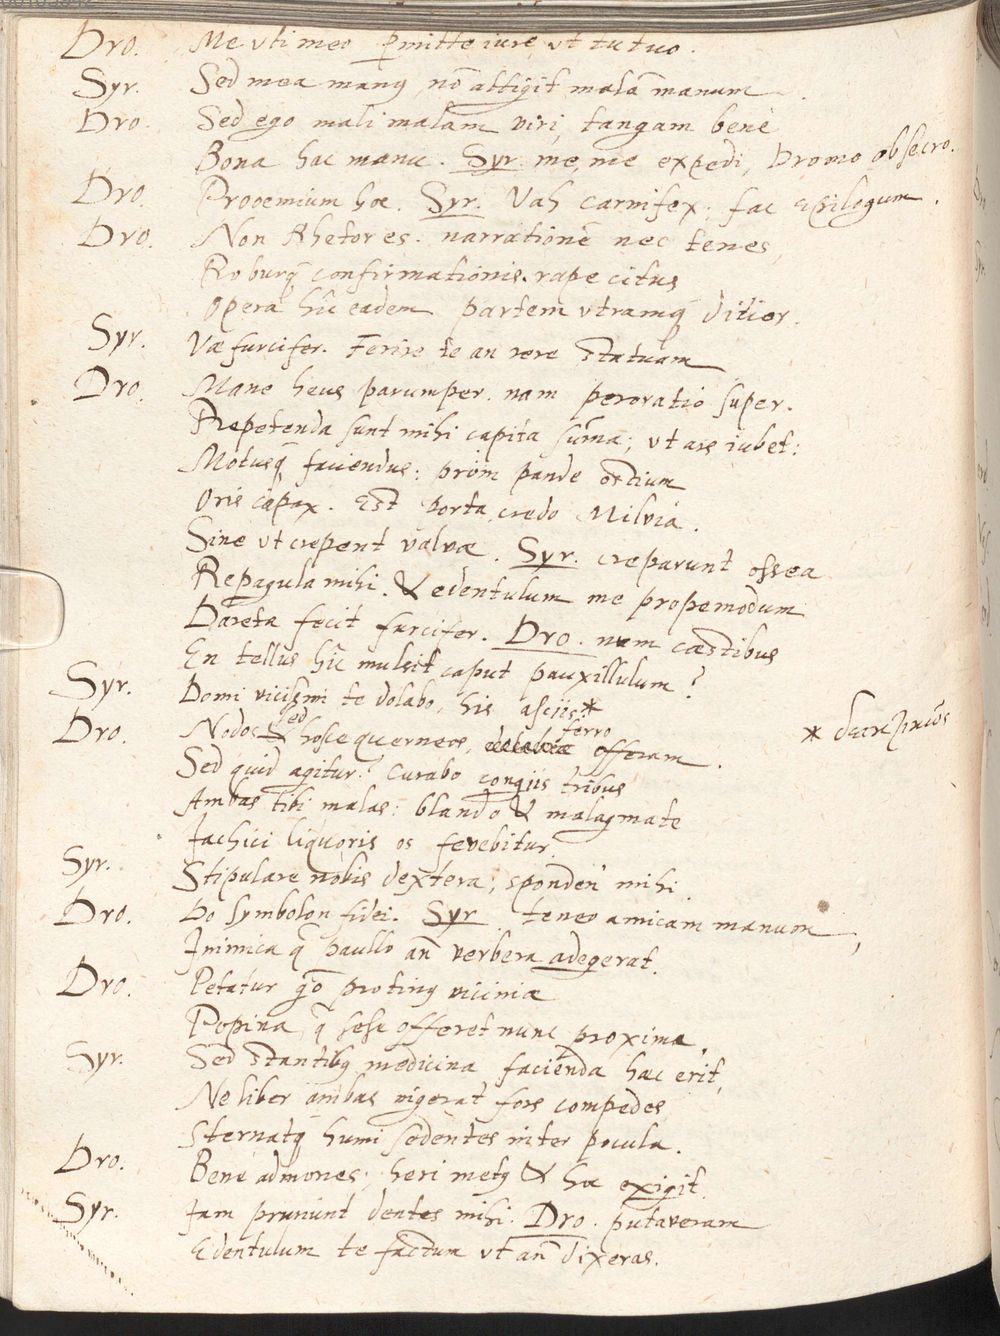 Dro. Me vti meo p̱mitte iure, vt tu tuo.
Syr. Sed mea manꝰ nō attigit malā manum.
Dro. Sed ego mali malam viri, tangam bene
Bona hac manu. Syr. me, me expedi, Dromo obsecro.
Dro. Prooemium hoc. Syr. Vah carnifex; fac Epilogum.
Dro. Non Rhetor es. narrationē nec tenes,
Roburq̨ confirmationis. rape citus
Opera hīc eadem partem vtramq̨
Syr. Væ furcifer. Ferire te an rere statuam
Dro. Mane heus parumper. nam peroratio super.
Repetenda sunt mihi capita sūma; vt ars iubet:
Motusq̨ faciendus: prōm pande ostium
Oris capax. Est porta, credo Milvia.
Sine vt crepent valvæ. Syr. creparunt ossea
Repagula mihi. & edentulum me propemodum
Dareta fecit furcifer. Dro. num cæstibus
En tellus hīc mulsit caput pauxillulum?
Syr. Domi vicissim te dolabo, his asciis*
Dro. Nodos sed hosce querneos, ferro offeram.
* 
Sed quid agitur? Curabo congiis tribus
Ambas tibi malas: blando & malagmate
Iachici liquoris os fovebitur
Syr. Stipulare nobis dextera; sponden' mihi
Dro. Do symbolon fidei. Syr. teneo amicam manum,
Inimica q̨ paullo an̄ verbera adegerat.
Dro. Petatur g̊o protinꝰ viciniæ
Popina, q̨ sese offeret nunc proxima.
Syr. Sed stantibꝰ medicina facienda hæc erit,
Ne liber ambas nigerat fors compedes
Sternatq̨ humi sedentes inter pocula.
Dro. Bene admones; heri metꝰ & hoc exigit.
Syr. Jam pruriunt dentes mihi. Dro. putaveram
Edentulum te factum vt an̄ dixeras.